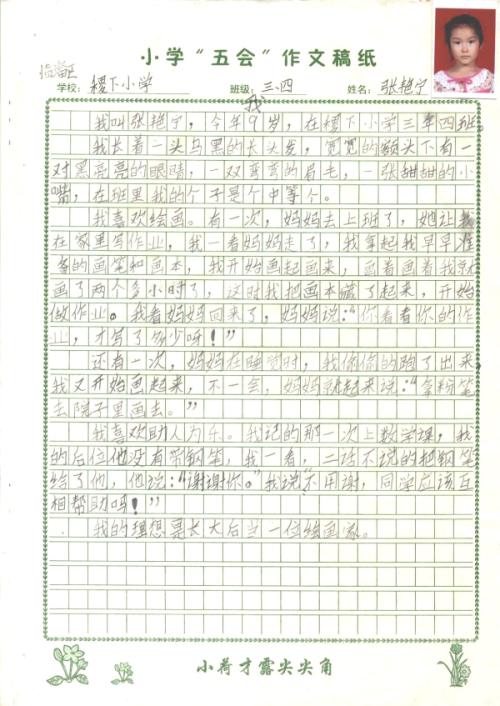 小学“五会”作文稿纸
临淄区
学校：稷下小学 班级：三、四 姓名：张艳宁
我
我叫张艳宁，今年9岁，在稷下小学三年四班。
我长着一头乌黑的长头发，宽宽的额头下有一
对黑亮亮的眼睛，一双弯弯的眉毛，一张甜甜的小
嘴，在班里我的个子是个中等个。
我喜欢绘画。有一次，妈妈去上班了，她让我
在家里写作业，我一看妈妈走了，我拿起我早早准
备的画笔和画本，我开始画起画来，画着画着我就
画了两个多小时了，这时我把画本藏了起来，开始
做作业。我看妈妈回来了，妈妈说：“你看看你的作
业，才写了多少呀！”
还有一次，妈妈在睡觉时，我偷偷的跑了出来
我又开始画起来，不一会，妈妈就起来说：“拿粉笔
去院子里画去。”
我喜欢助人为乐。我记的那一次上数学课，我
的后位他没有带钢笔，我一看，二话不说的把钢笔
给了他，他说：“谢谢你。”我说“不用谢，同学应该互
相帮助吗！”
我的理想票长大后当一位绘画家。
小荷才露尖尖角